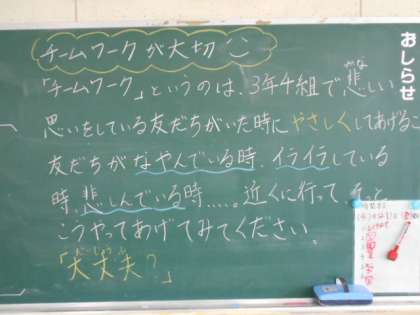 おしらせ
チームワークが大切
「チームワーク」というのは、3年4組で悲しい
かな
思いをしている友だちがいた時にやさしくしてあげるこ
友だちがなやんでいる時、イライラしている
時、悲しんでいる時……。近くに行って そっと
こうやってあげてみてください。
だいじょうぶ
「大丈夫？」